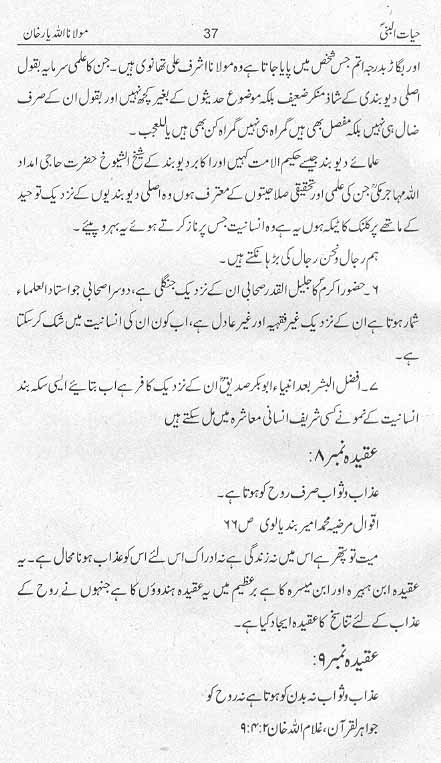 حیات النبیؐ 37 مولانا اللہ یار خان
اور بگاڑ بدرجہ اتم جس شخص میں پایا جاتا ہے وہ مولانا اشرف علی تھانوی ہیں۔ جن کا علمی سرمایہ بقول
اصلی دیوبندی کے شاذ منکر ضعیف بلکہ موضوع حدیثوں کے بغیر کچھ نہیں اور بقول ان کے صرف
ضال ہی نہیں بلکہ مفصل بھی ہیں گمراہ ہی نہیں گمراہ کن بھی ہیں یا للعجب ۔
علمائے دیوبند جیسے حکیم الامت کہیں اور اکابر دیوبند کے شیخ الشیوخ حضرت حاجی امداد
اللہ مہاجر مکیؒ جن کی علمی اور تحقیقی صلاحیتوں کے معترف ہوں وہ اصلی دیوبندیوں کے نزدیک توحید
کے ماتھے پر کلنک کا ٹیکہ ہوں یہ ہے وہ انسانیت جس پر ناز کرتے ہوئے یہ بہروپیئے ۔
ہم رجال و نحن رجال کی بڑ ہانکتے ہیں۔
۶۔ حضور اکرمؐ کا جلیل القدر صحابی ان کے نزدیک جنگلی ہے، دوسرا صحابی جو استاد العلماء
شمار ہوتا ہے ان کے نزدیک غیر فقہیہ اور غیر عادل ہے، اب کون ان کی انسانیت میں شک کر سکتا
ہے۔
۷۔ افضل البشر بعد انبیاء ابوبکر صدیقؓ ان کے نزدیک کافر ہے اب بتائیے ایسی سکہ بند
انسانیت کے نمونے کسی شریف انسانی معاشرہ میں مل سکتے ہیں
عقیدہ نمبر ۸:
عذاب و ثواب صرف روح کو ہوتا ہے۔
اقوال مرضیہ محمد امیر بندیالوی ص ۶۶
میت تو پتھر ہے اس میں نہ زندگی ہے نہ ادراک اس لئے اس کو عذاب ہونا محال ہے۔ یہ
عقیدہ ابن ہبیرہ اور ابن میسرہ کا ہے برعظیم میں یہ عقیدہ ہندوؤں کا ہے جنہوں نے روح کے
عذاب کے لئے تناسخ کا عقیدہ ایجاد کیا ہے۔
عقیدہ نمبر ۹:
عذاب و ثواب نہ بدن کو ہوتا ہے نہ روح کو
جواہر القرآن، غلام اللہ خان ۹:۴:۲